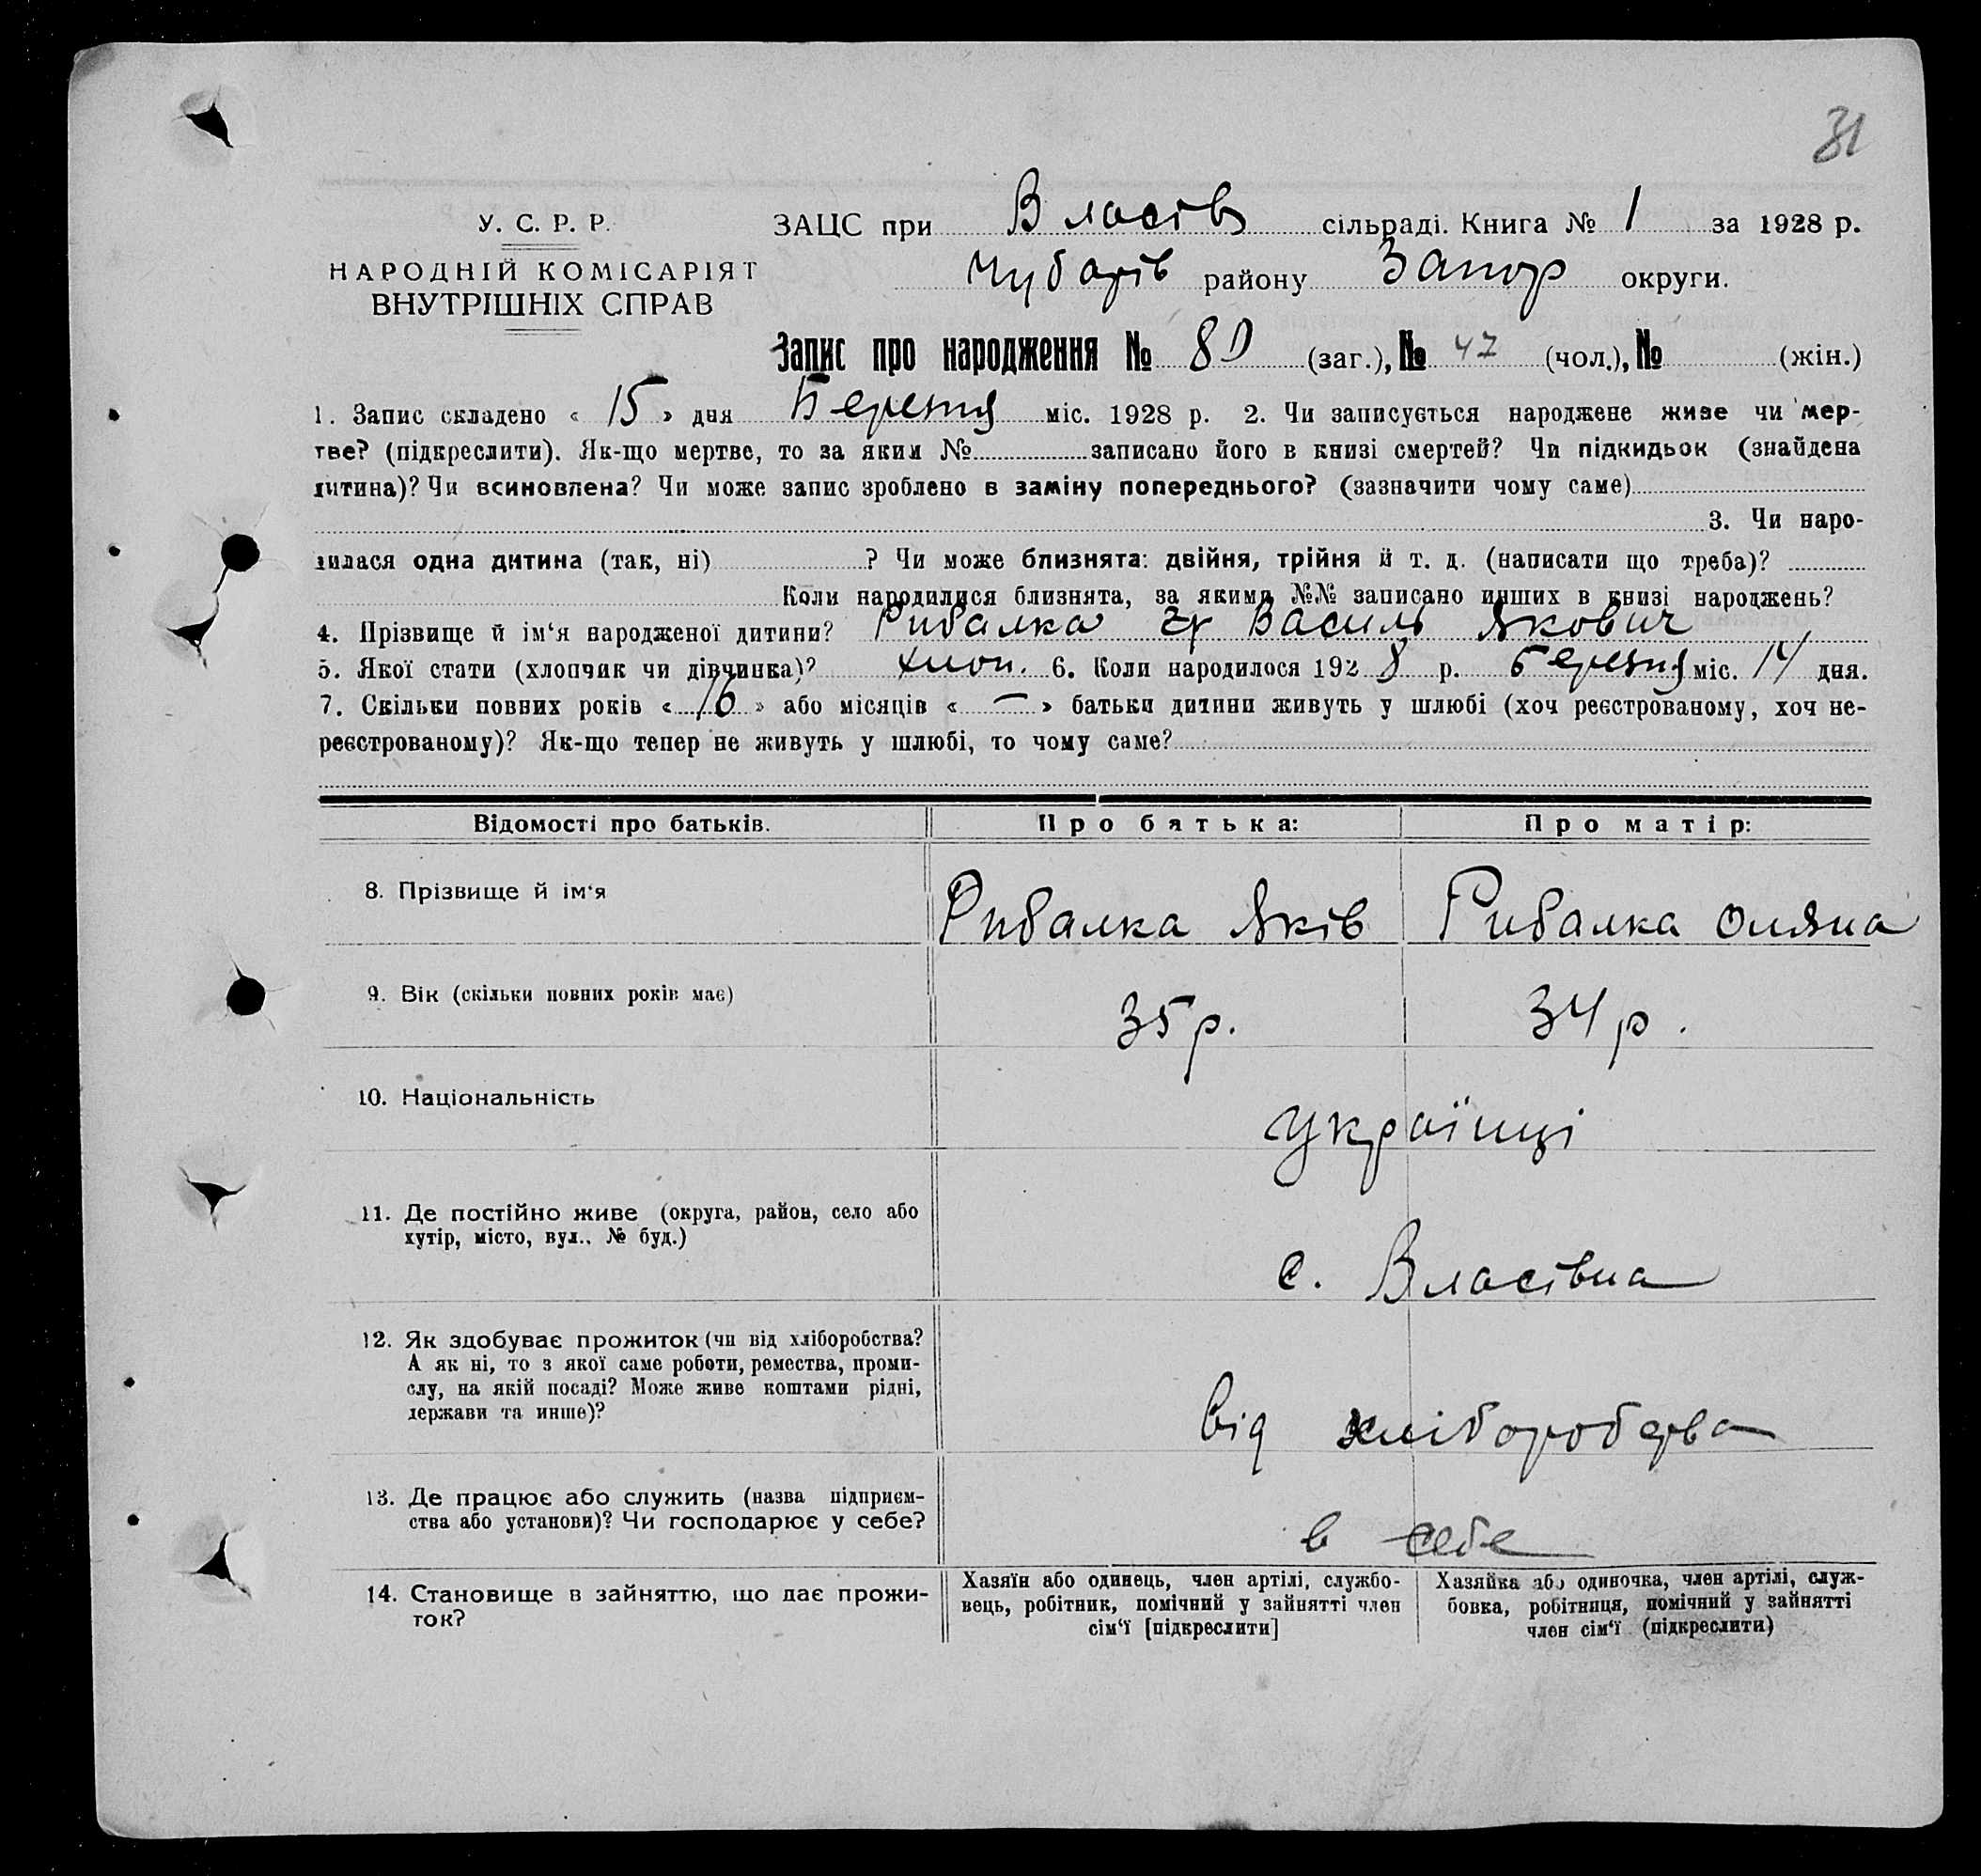 31
У. С. Р. Р.
НАРОДНІЙ КОМІСАРІЯТ
ВНУТРІШНІХ СПРАВ
ЗАЦС при Власів сільраді. Книга № 1 за 1928 р.
Чубарів району Запор округи.
Запис про народження № 80 (заг.), № 47 (чол.), № (жін.)
1. Запис складено « 15 » дня Березня міс. 1928 р. 2. Чи записується народжене живе чи мер-
тве? (підкреслити). Як-що мертве, то за яким № записано його в книзі смертей? Чи підкидьок (знайдена
дитина)? Чи всиновлена? Чи може запис зроблено в заміну попереднього? (зазначити чому саме)
3. Чи наро-
дилася одна дитина (так, ні) ? Чи може близнята: двійня, трійня й т. д. (написати що треба)?
Коли народилися близнята, за якими №№ записано инших в книзі народжень?
4. Прізвище й ім‘я народженої дитини? Рибалка Василь Якович
5. Якої стати (хлопчик чи дівчинка)? хлоп. 6. Коли народилося 1928 р. Березня міс. 14 дня.
7. Скільки повних років « 16 » або місяців « — » батьки дитини живуть у шлюбі (хоч реєстрованому, хоч не-
реєстрованому)? Як-що тепер не живуть у шлюбі, то чому саме?
Відомості про батьків. Про батька: Про матір:
8. Прізвище й ім‘я Рибалка Яків Рибалка Оляна
9. Вік (скільки повних років має) 35 р. 34 р.
10. Національність українці
11. Де постійно живе (округа, район, село або
хутір, місто, вул., № буд.)
с. Власівка
12. Як здобуває прожиток (чи від хліборобства?
А як ні, то з якої саме роботи, ремества, проми-
слу, на якій посаді? Може живе коштами рідні,
держави та инше)?
від хліборобства
13. Де працює або служить (назва підприєм-
ства або установи)? Чи господарює у себе?
в себе
14. Становище в зайняттю, що дає прожи-
ток?
Хазяїн або одинець, член артілі, службо-
вець, робітник, помічний у зайнятті член
сім‘ї [підкреслити]
Хазяйка або одиночка, член артілі, служ-
бовка, робітниця, помічний у зайнятті
член сім‘ї (підкреслити)